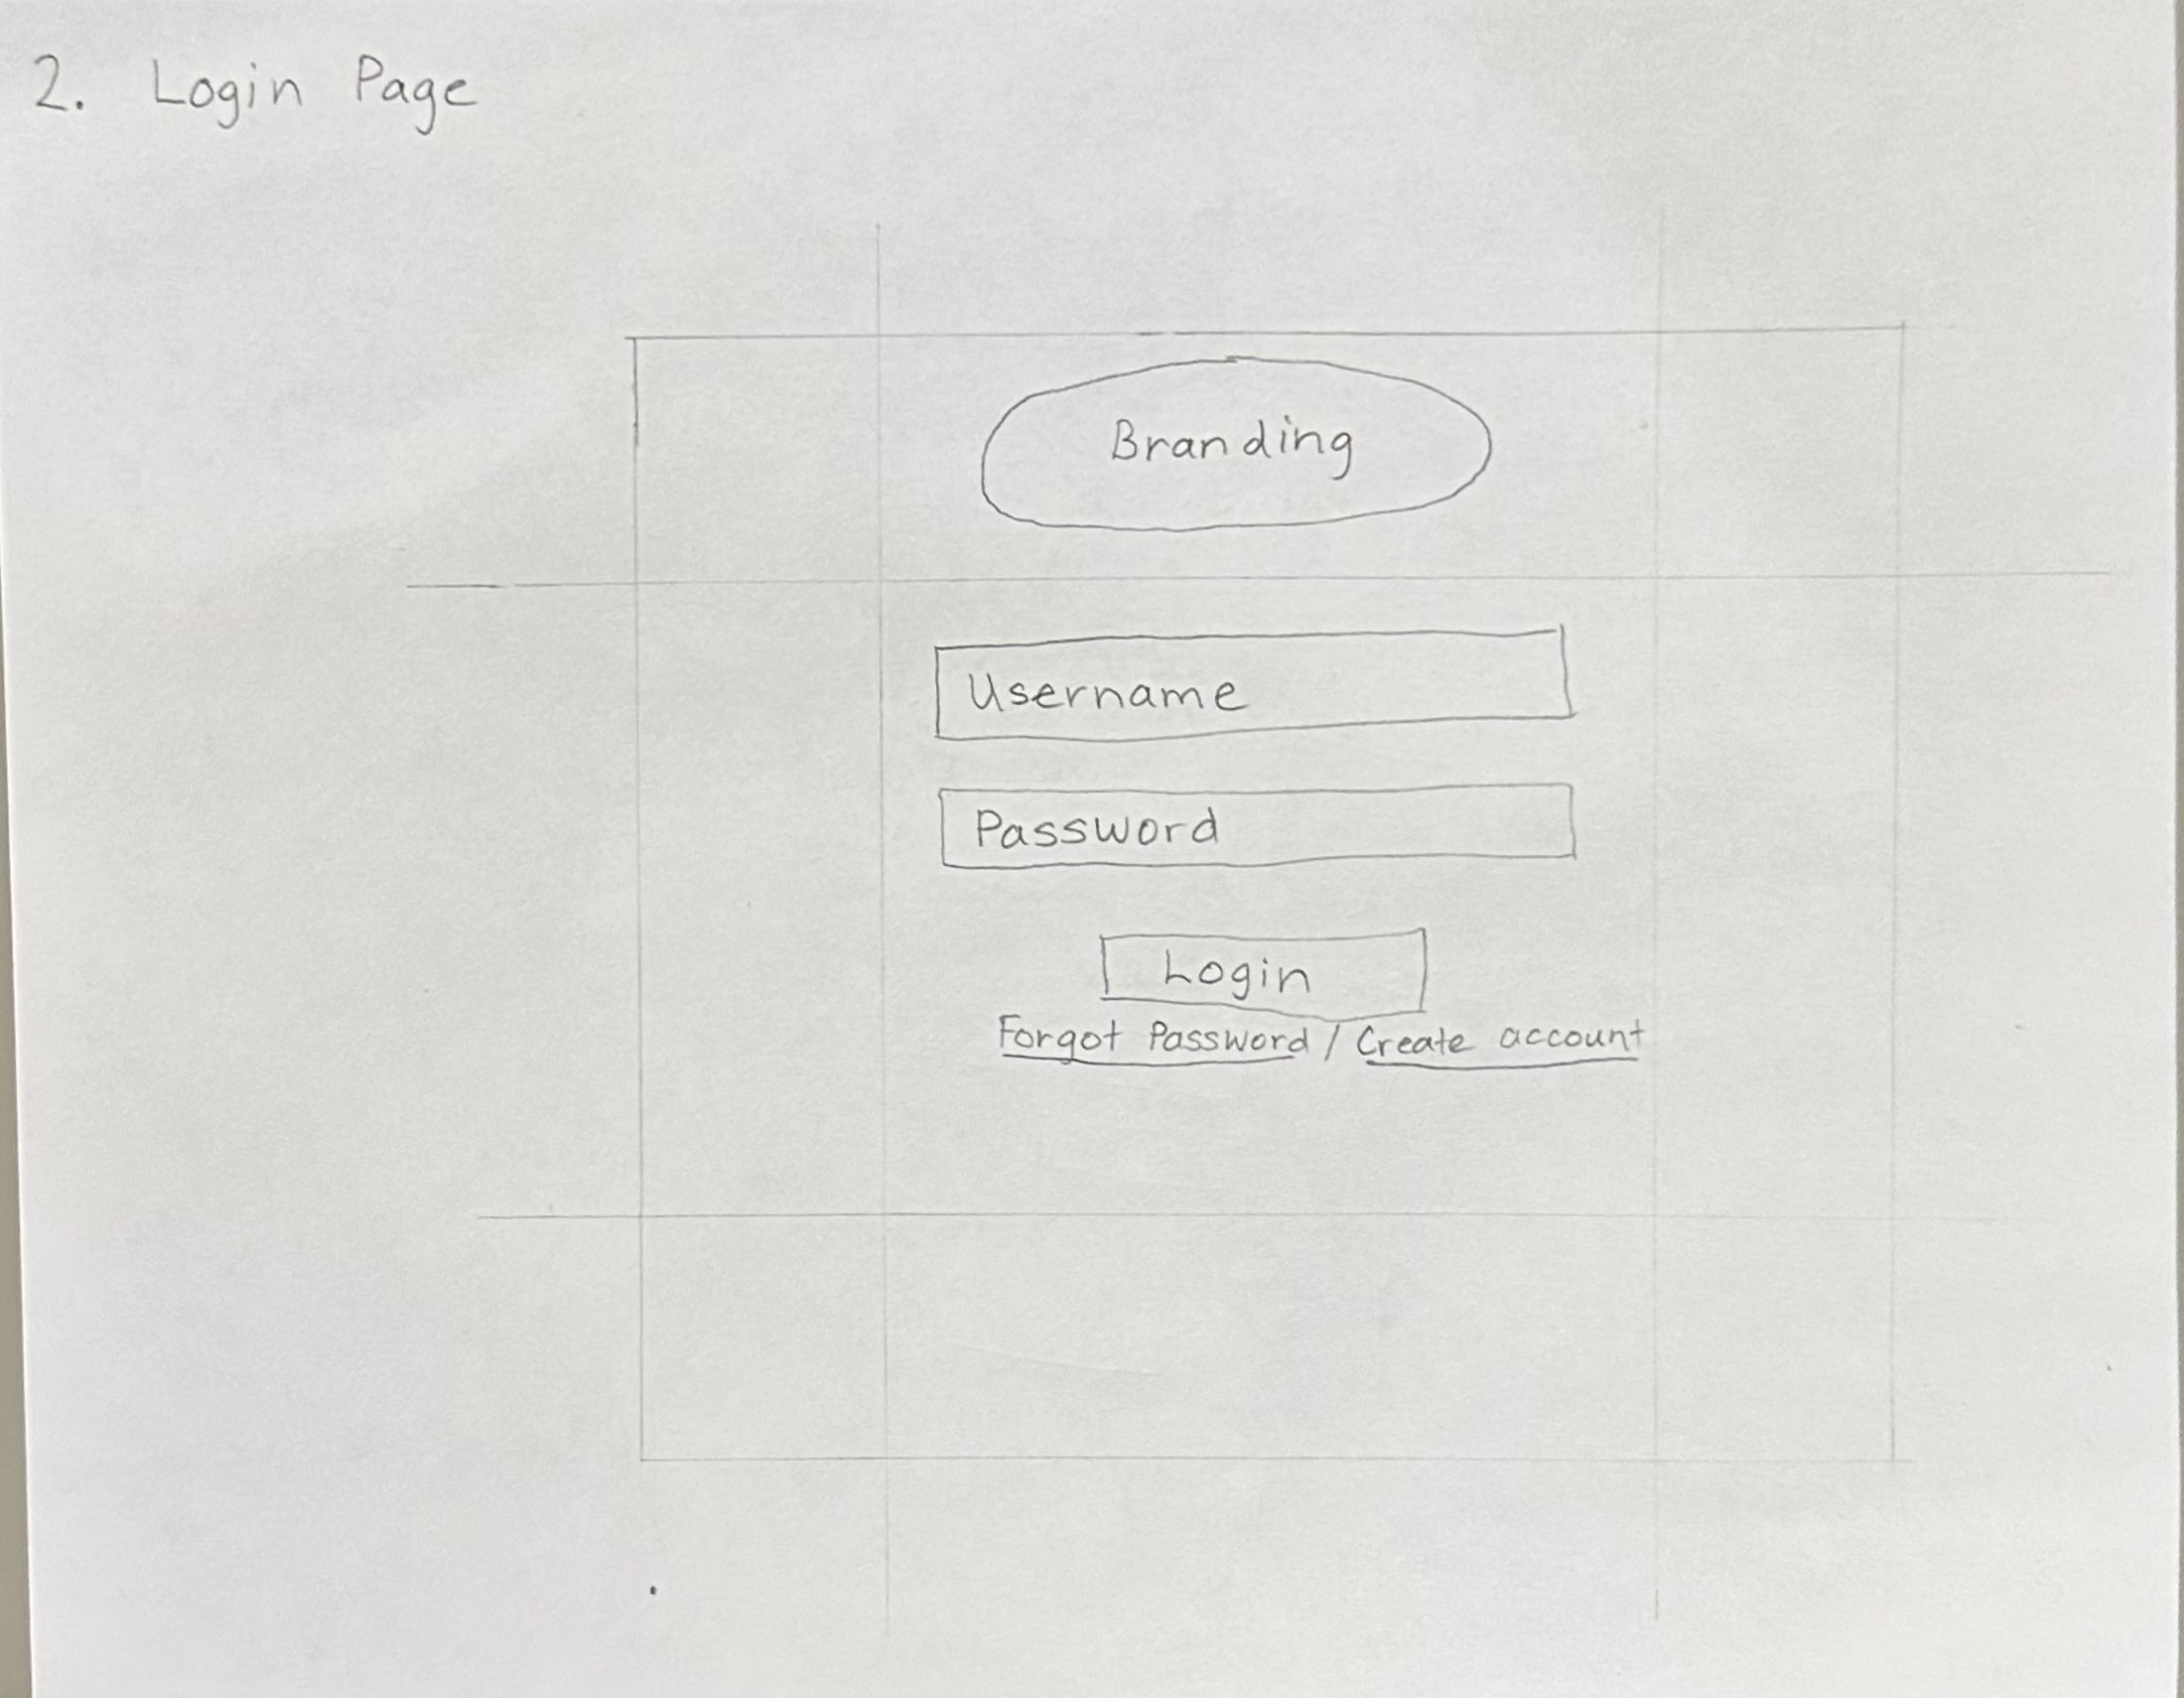 2. Login Page
Branding
Username
Password
Login
Forgot Password / Create account